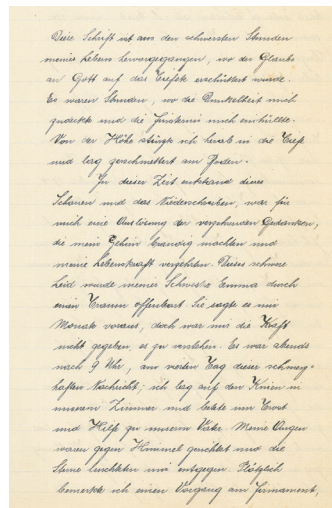 Diese Schrift ist aus den schwersten Stunden
meines Lebens hervorgegangen, wo der Glaube
an Gott auf das Tiefste erschüttert wurde.
Es waren Stunden, wo die Dunkelheit mich
zudeckte und die Finsternis mich einhüllte.
Von der Höhe stürzte ich herab in die Tiefe
und lag geschmettert am Boden.
In dieser Zeit entstand dieses
Schauen und das Niederschreiben, war für
mich eine Auslösung der verzehrenden Gedanken,
die mein Gehirn brandig machten und
meine Lebenskraft verzehrten. Dieses schwere
Leid wurde meiner Schwester Emma durch
einen Traum offenbart. Sie sagte es mir
Monate voraus, doch war uns die Kraft
nicht gegeben, es zu verstehen. Es war abends
nach 9 Uhr, am vierten Tag dieser schmerz-
haften Nachricht; ich lag auf den Knien in
unserem Zimmer und betete um Trost
und Hilfe zu unserem Vater. Meine Augen
waren gegen Himmel gerichtet und die
Sterne leuchteten mir entgegen. Plötzlich
bemerkte ich einen Vorgang am Firmament,